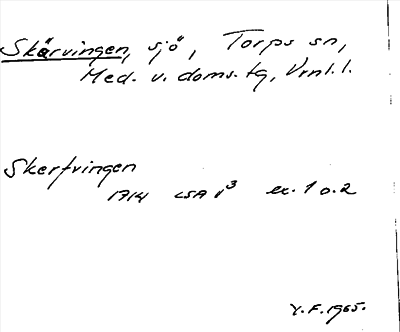 Skärvingen, sjö, Torps sn,
Med. v. doms. tg, Vrnl. l.
Skerfvingen
1714 LSA V3 ex. 1 o. 2
Y. F. 1965.